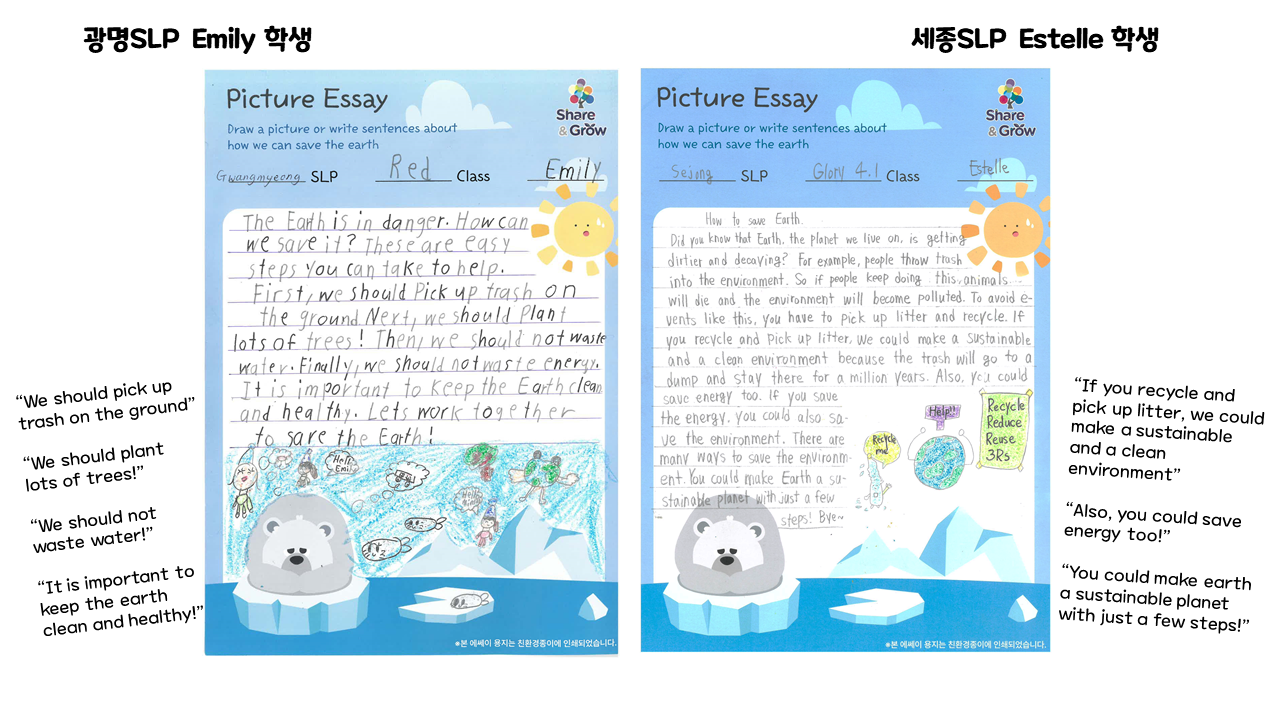 광명SLP Emily 학생
세종SLP Estelle 학생
Picture Essay
Share
& Grow
Draw a picture or write sentences about
how we can save the earth
Gwangmyeong SLP Red Class Emily
The Earth is in danger. How can
we save it? These are easy
steps you can take to help.
First, we should Pick up trash on
the ground. Next, we should Plant
lots of trees! Then, we should not waste
water. Finally, we should not waste energy.
It is important to keep the Earth clean
and healthy. Lets work together
to save the Earth!
Hello
Emily
※본 에쎄이 용지는 친환경종이에 인쇄되었습니다.
“We should pick up
trash on the ground”
“We should plant
lots of trees!”
“We should not
waste water!”
“It is important to
keep the earth
clean and healthy!”
Picture Essay
Share
& Grow
Draw a picture or write sentences about
how we can save the earth
Sejong SLP Glory 4.1 Class Estelle
How to save Earth.
Did you know that Earth, the planet we live on, is getting
dirtier and decaying? For example, people throw trash
into the environment. So if people keep doing this, animals
will die and the environment will become polluted. To avoid e-
vents like this, you have to pick up litter and recycle. If
you recycle and Pick up litter, we could make a sustainable
and a clean environment because the trash will go to a
dump and stay there for a million years. Also, you could
save energy too. If you save
the energy, you could also sa-
ve the environment. There are
many ways to save the environm-
ent. You could make Earth a su-
stainable planet with just a few
steps! Bye~
Recycle
me!
Help!!
Recycle
Reduce
Reuse
3Rs
※본 에쎄이 용지는 친환경종이에 인쇄되었습니다.
“If you recycle and
pick up litter, we could
make a sustainable
and a clean
environment”
“Also, you could save
energy too!”
“You could make earth
a sustainable planet
with just a few steps!”